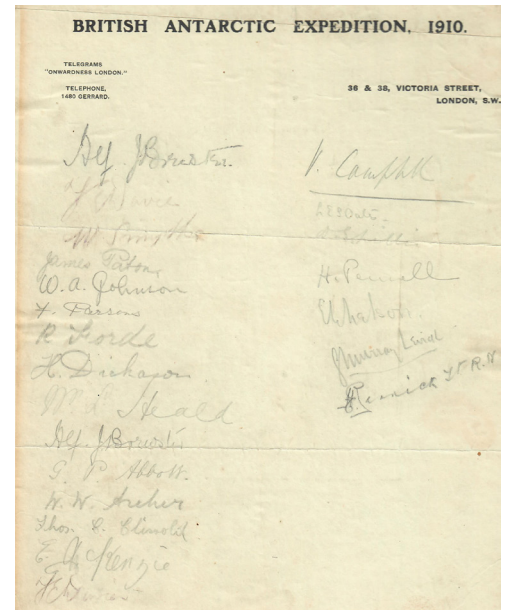 BRITISH ANTARCTIC EXPEDITION, 1910.
TELEGRAMS
"ONWARDNESS LONDON."
TELEPHONE,
1480 GERRARD.
36 & 38, VICTORIA STREET,
LONDON, S.W.
Alf. J Brewster.
F Davies
W. Smythe
James Paton
W. A. Johnson
F. Parsons
R Forde
H. Dickason
W. L. Heald.
Alf. J Brewster
G. P. Abbott.
W. W. Archer
Thos. C. Clissold
E. McKenzie
V. Campbell
LEGOates.
H. Pennell
J Murray Levick
Rennick Lt R.N